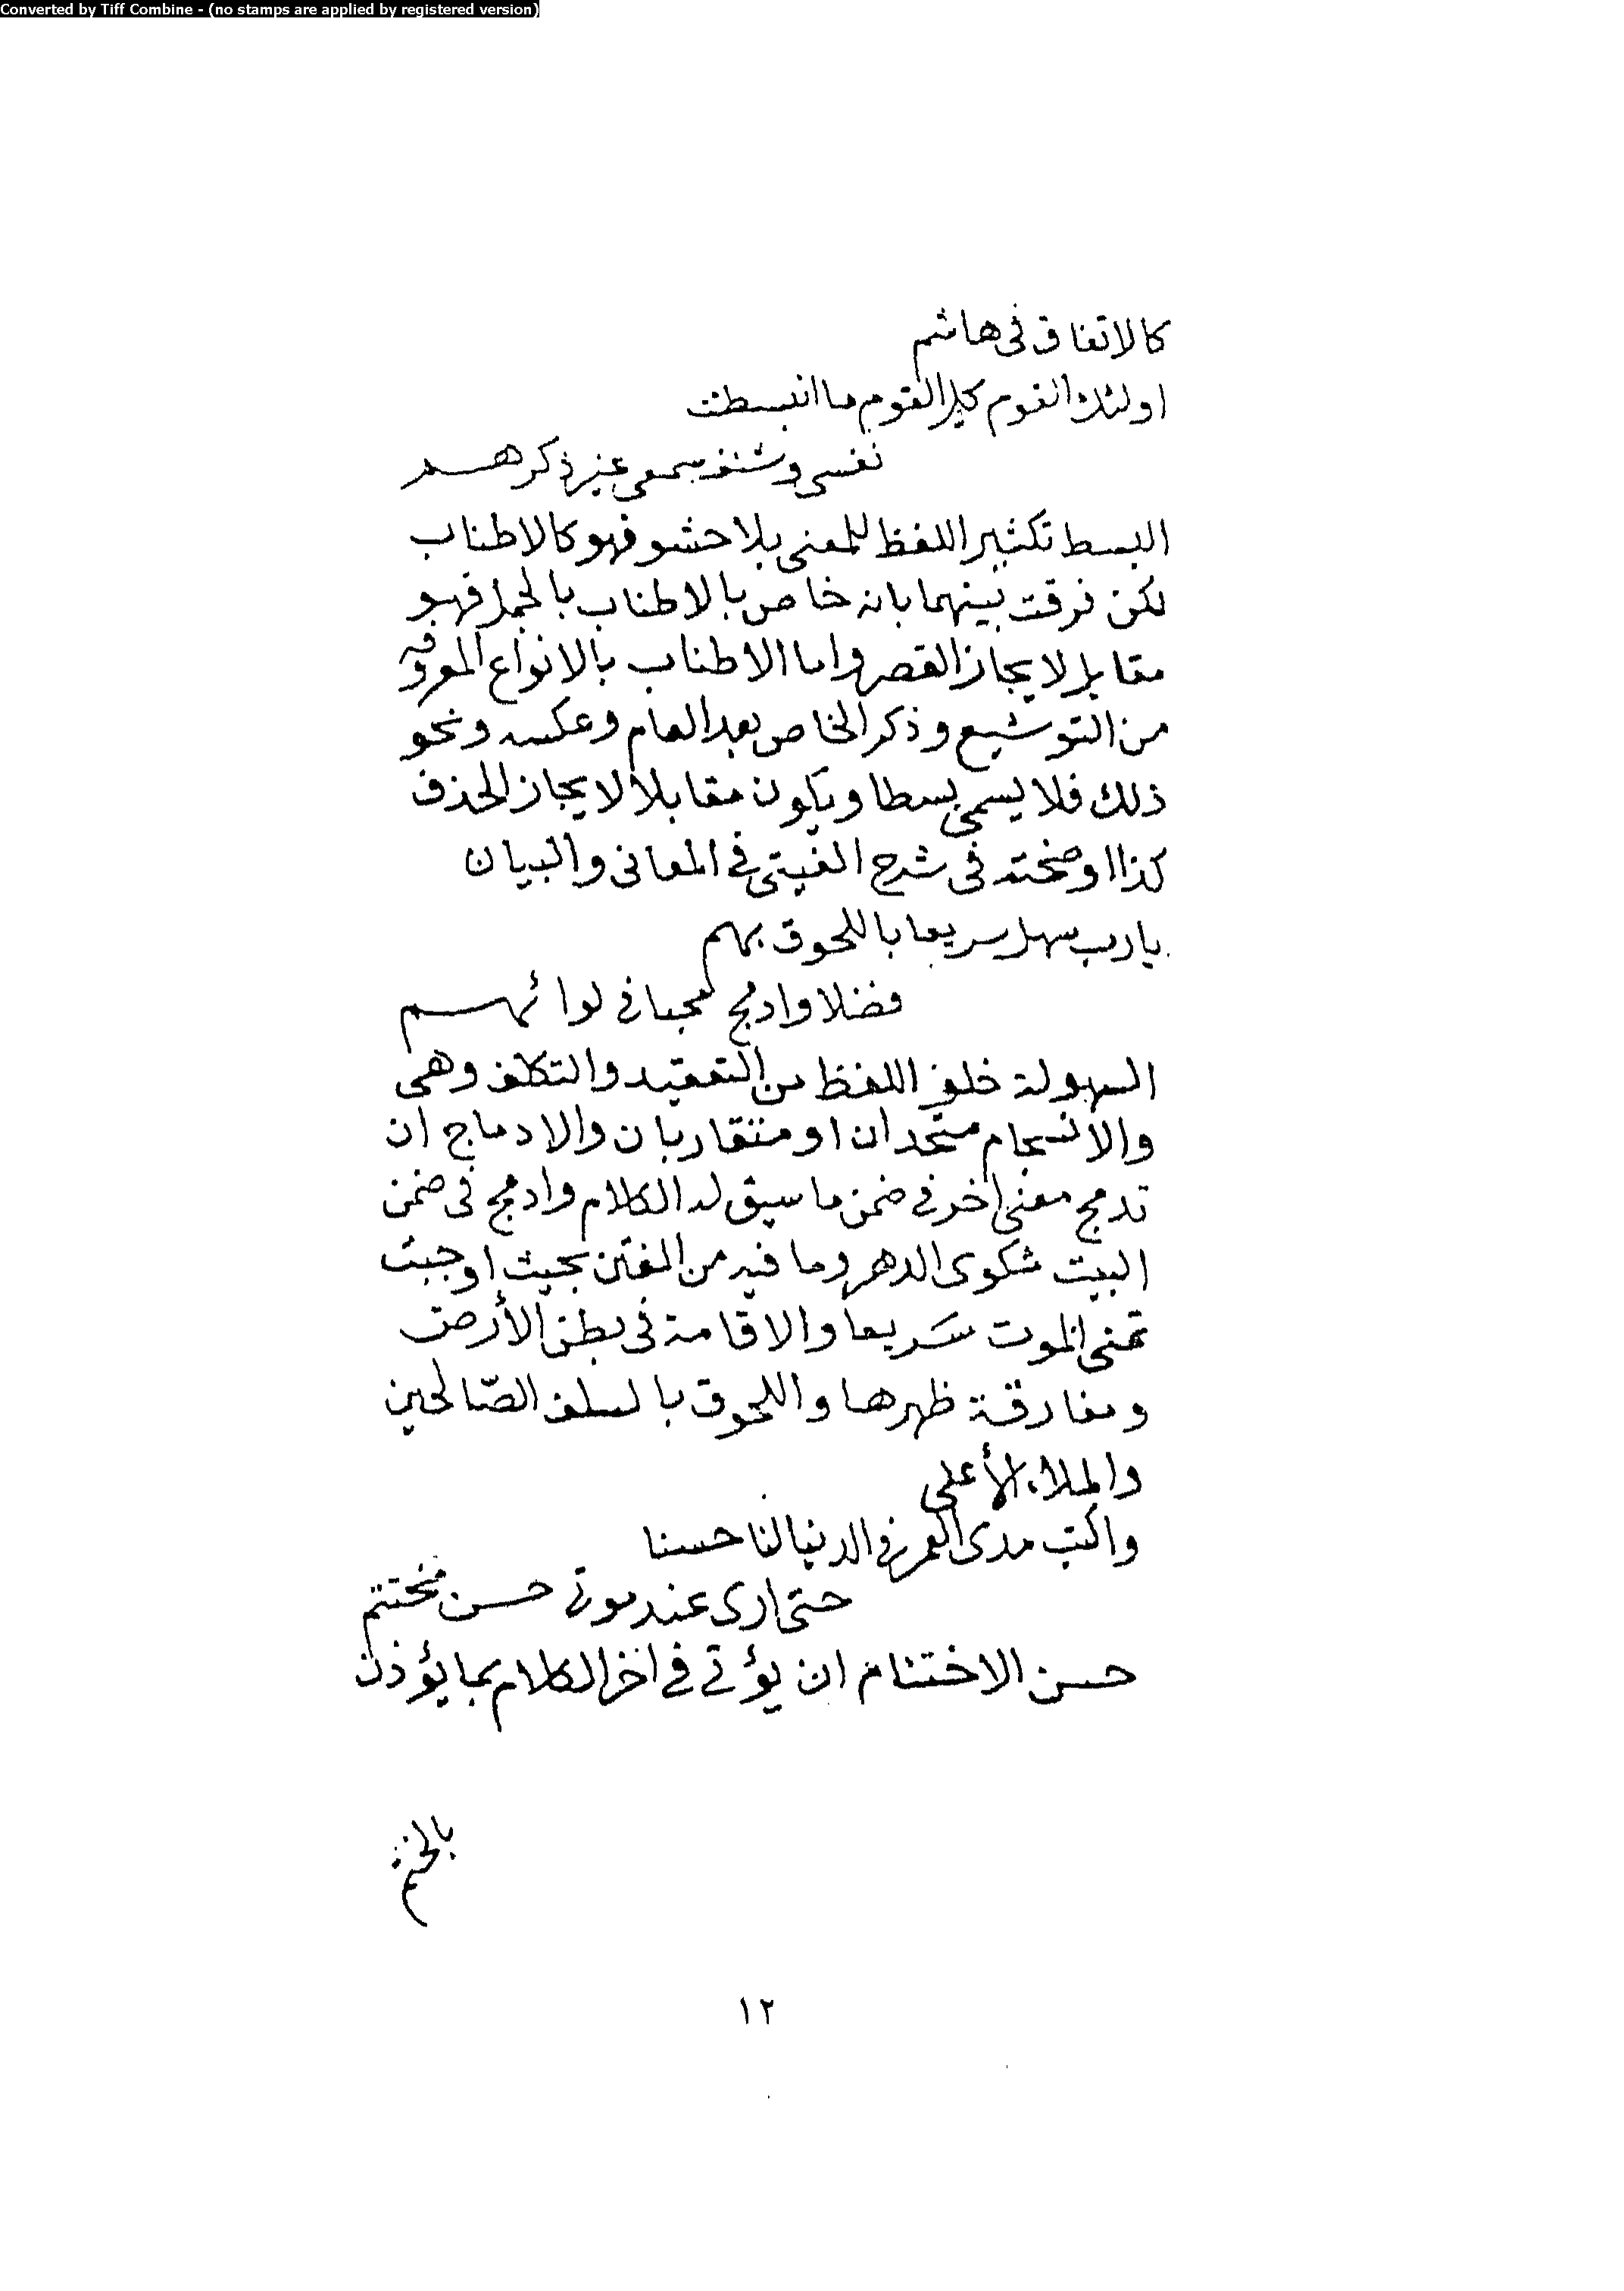 Converted by Tiff Combine - (no stamps are applied by registered version)
كالاتفاق فى هاشم
اولئك القوم كل القوم ما انبسطت
نفسى وشنف سمعى غير ذكرهم
البسط تكثير اللفظ للمعنى بلا حشو فهو كالاطناب
لكن فرقت بينهما بانه خاص بالاطناب بالجمل فهو
مقابل لايجاز القصر واما الاطناب بالانواع المعروفه
من التوشيع وذكر الخاص بعد العام وعكسه ونحو
ذلك فلا يسمى بسطا ويكون مقابلا لايجاز الحذف
كذا اوضحته فى شرح الفيتى فى المعانى والبيان
يا رب سهل سريعا باللحوق بهم
فضلا وادمج محبا فى لوائهم
السهولة خلو اللفظ من التعقيد والتكلف وهى
والانسجام متحدان او متقاربان والادماج ان
تدمج معنى اخر فى ضمن ما سيق له الكلام وادمج فى ضمن
البيت شكوى الدهر وما فيه من الفتن بحيث اوجبت
تمنى الموت سَريعا والاقامة فى بطن الأرض
ومفارقة ظهرها واللحوق بالسلف الصّالحين
والملاء الأعلى
واكتب مدى العمر فى الدنيا لنا حسنا
حتى ارى عند موتى حسن مختتم
حسن الاختتام ان يؤتى فى اخر الكلام بما يؤذن
بالختم
١٢